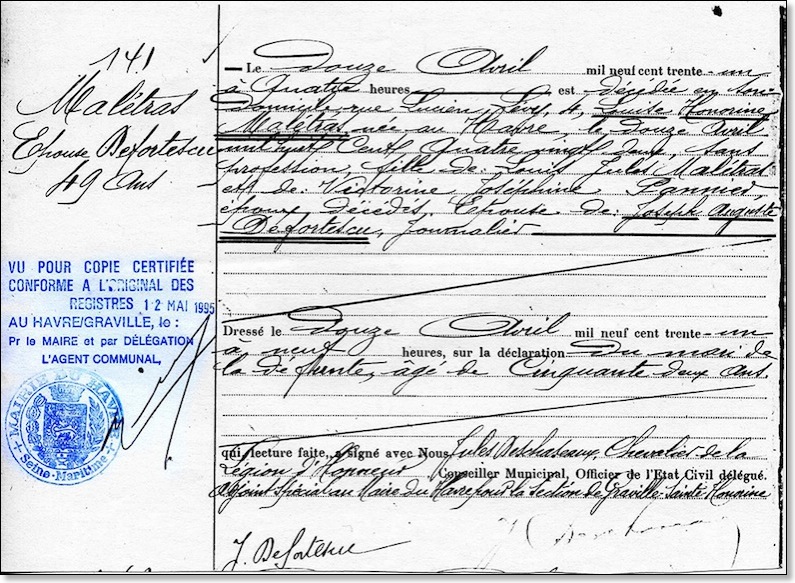 141
Malétras
Epouse Defortescu
49 Ans
Le Douze Avril mil neuf cent trente-un
à Quatre heures est décédée en son
domicile rue Lucien Lévy, 4, Louise Honorine
Malétras née au Havre, le douze Avril
mil huit Cent Quatre vingt deux, sans
profession, fille de Louis Jules Malétras
et de Victorine Joséphine Pannier,
époux décédés, Epouse de Joseph Auguste
Defortescu, Journalier
VU POUR COPIE CERTIFIÉE
CONFORME A L'ORIGINAL DES
REGISTRES 12 MAI 1995
AU HAVRE/GRAVILLE, le :
Pr le MAIRE et par DÉLÉGATION
L'AGENT COMMUNAL,
MAIRIE DU HAVRE
Seine-Maritime
Dressé le Douze Avril mil neuf cent trente-un
à neuf heures, sur la déclaration Du mari de
la défunte, âgé de Cinquante deux ans.
qui, lecture faite, a signé avec Nous, Jules Deschaseaux, Chevalier de la
Légion d'Honneur Conseiller Municipal, Officier de l'Etat Civil délégué.
Adjoint Spécial au Maire du Havre pour la Section de Graville-Sainte Honorine
J. Defortescu